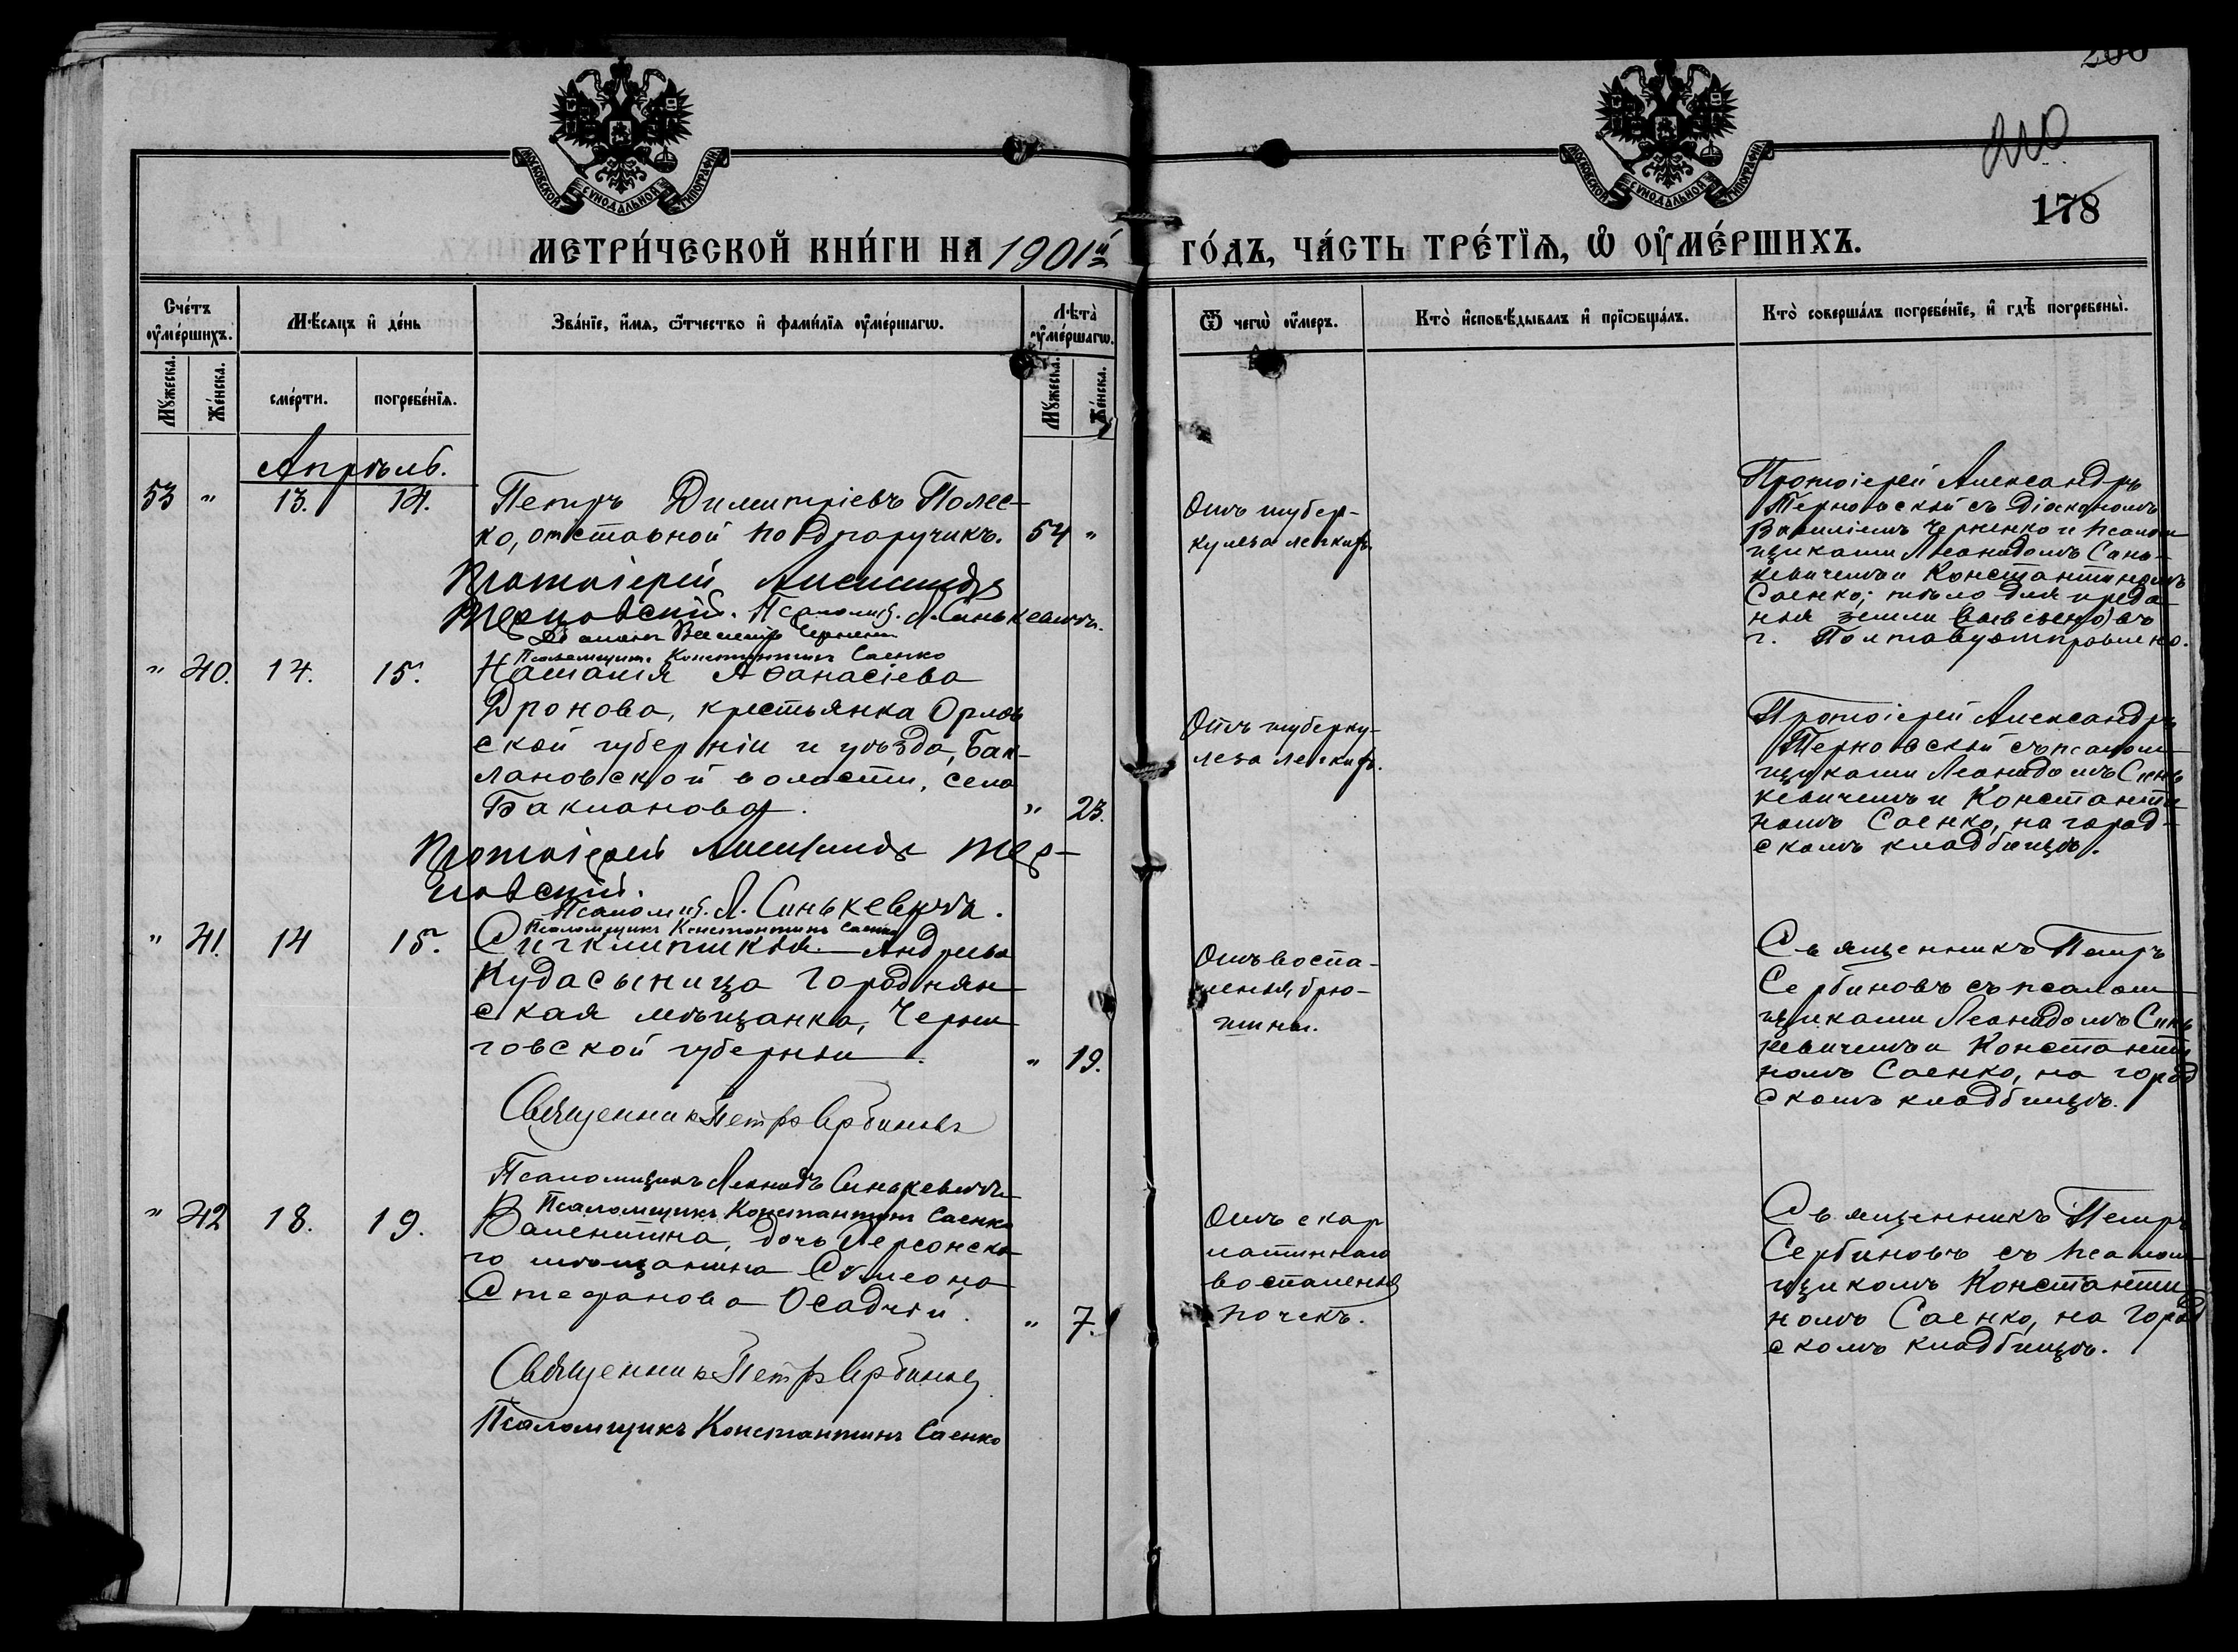 200
210
178
МОСКОВСКОЙ СѴНОДАЛЬНОЙ ТИПОГРАФІИ
МОСКОВСКОЙ СѴНОДАЛЬНОЙ ТИПОГРАФІИ
МЕТРИ́ЧЕСКОЙ КНИ́ГИ НА 1901й ГО́ДЪ, ЧА́СТЬ ТРЕ́ТЇѦ, Ѡ҆ ОУ҆МЕ́РШИХЪ.
Сче́тъ оу҆ме́ршихъ.
Мѣ́сяцъ и҆ де́нь
Зва́нїе, и҆́мя, ѻ҆́тчество и҆ фами́лїя оу҆ме́ршагѡ.
Лѣ́та̀ оу҆ме́ршагѡ.
Ѿ чегѡ̀ оу҆́меръ.
Кто̀ и҆сповѣ́дывалъ и҆ прїѡбща́лъ.
Кто̀ соверша́лъ погребе́нїе, и҆ гдѣ̀ погребены̀.
Мꙋ́жеска.
Же́нска.
сме́рти.
погребе́нїѧ.
Мꙋ́жеска.
Же́нска.
Апрѣль.
53 " 13. 14. Петръ Димитріевъ Полес-
ко, отставной подпоручикъ. 54 "
Протоіерей Александр
Терновский. Псаломщ. Л. Синькевичъ.
Диаконъ Василій Черненко
Псаломщикъ Константинъ Саенко
Отъ тубер-
кулеза легкихъ.
Протоіерей Александръ
Терновскій съ діакономъ
Василіемъ Черненко и псалом
щиками Леонидомъ Синь-
кевичемъ и Константиномъ
Саенко; тѣло для преда
нія земли въ
г. Полтаву отправлено.
" 40. 14. 15. Наталія Аѳанасіева
Дронова, крестьянка Орлов
ской губерніи и уѣзда, Бак-
лановской волости, села
Бакланова. " 23.
Протоіерей Александр Тер-
новский.
Псаломщ. Л. Синькевичъ.
Псаломщикъ Константинъ Саенко
Отъ туберку-
леза легкихъ.
Протоіерей Александръ
Терновскій съ псалом
щиками Леонидомъ Синь
кевичемъ и Константи
номъ Саенко, на город-
скомъ кладбищѣ.
" 41. 14 15. Синклитикія Андреева
Кудасыница Городнян
ская мѣщанка, Черни
говской губерніи. " 19.
Священник Петръ Сербиновъ
Псаломщикъ Леонидъ Синькевичъ
Псаломщикъ Константинъ Саенко
Отъ воспа-
ленія брю-
шины.
Священникъ Петръ
Сербиновъ съ псалом
щиками Леонидомъ Синь
кевичемъ и Константи
номъ Саенко, на город
скомъ кладбищѣ.
" 42 18. 19. Валентина, дочь Херсонска
го мѣщанина Сѵмеона
Стефанова Осадчій. " 7.
Священник Петръ Сербиновъ
Псаломщикъ Константинъ Саенко
Отъ скар
латиннаго
воспаленія
почекъ.
Священникъ Петръ
Сербиновъ съ псалом
щикомъ Константи
номъ Саенко, на город
скомъ кладбищѣ.